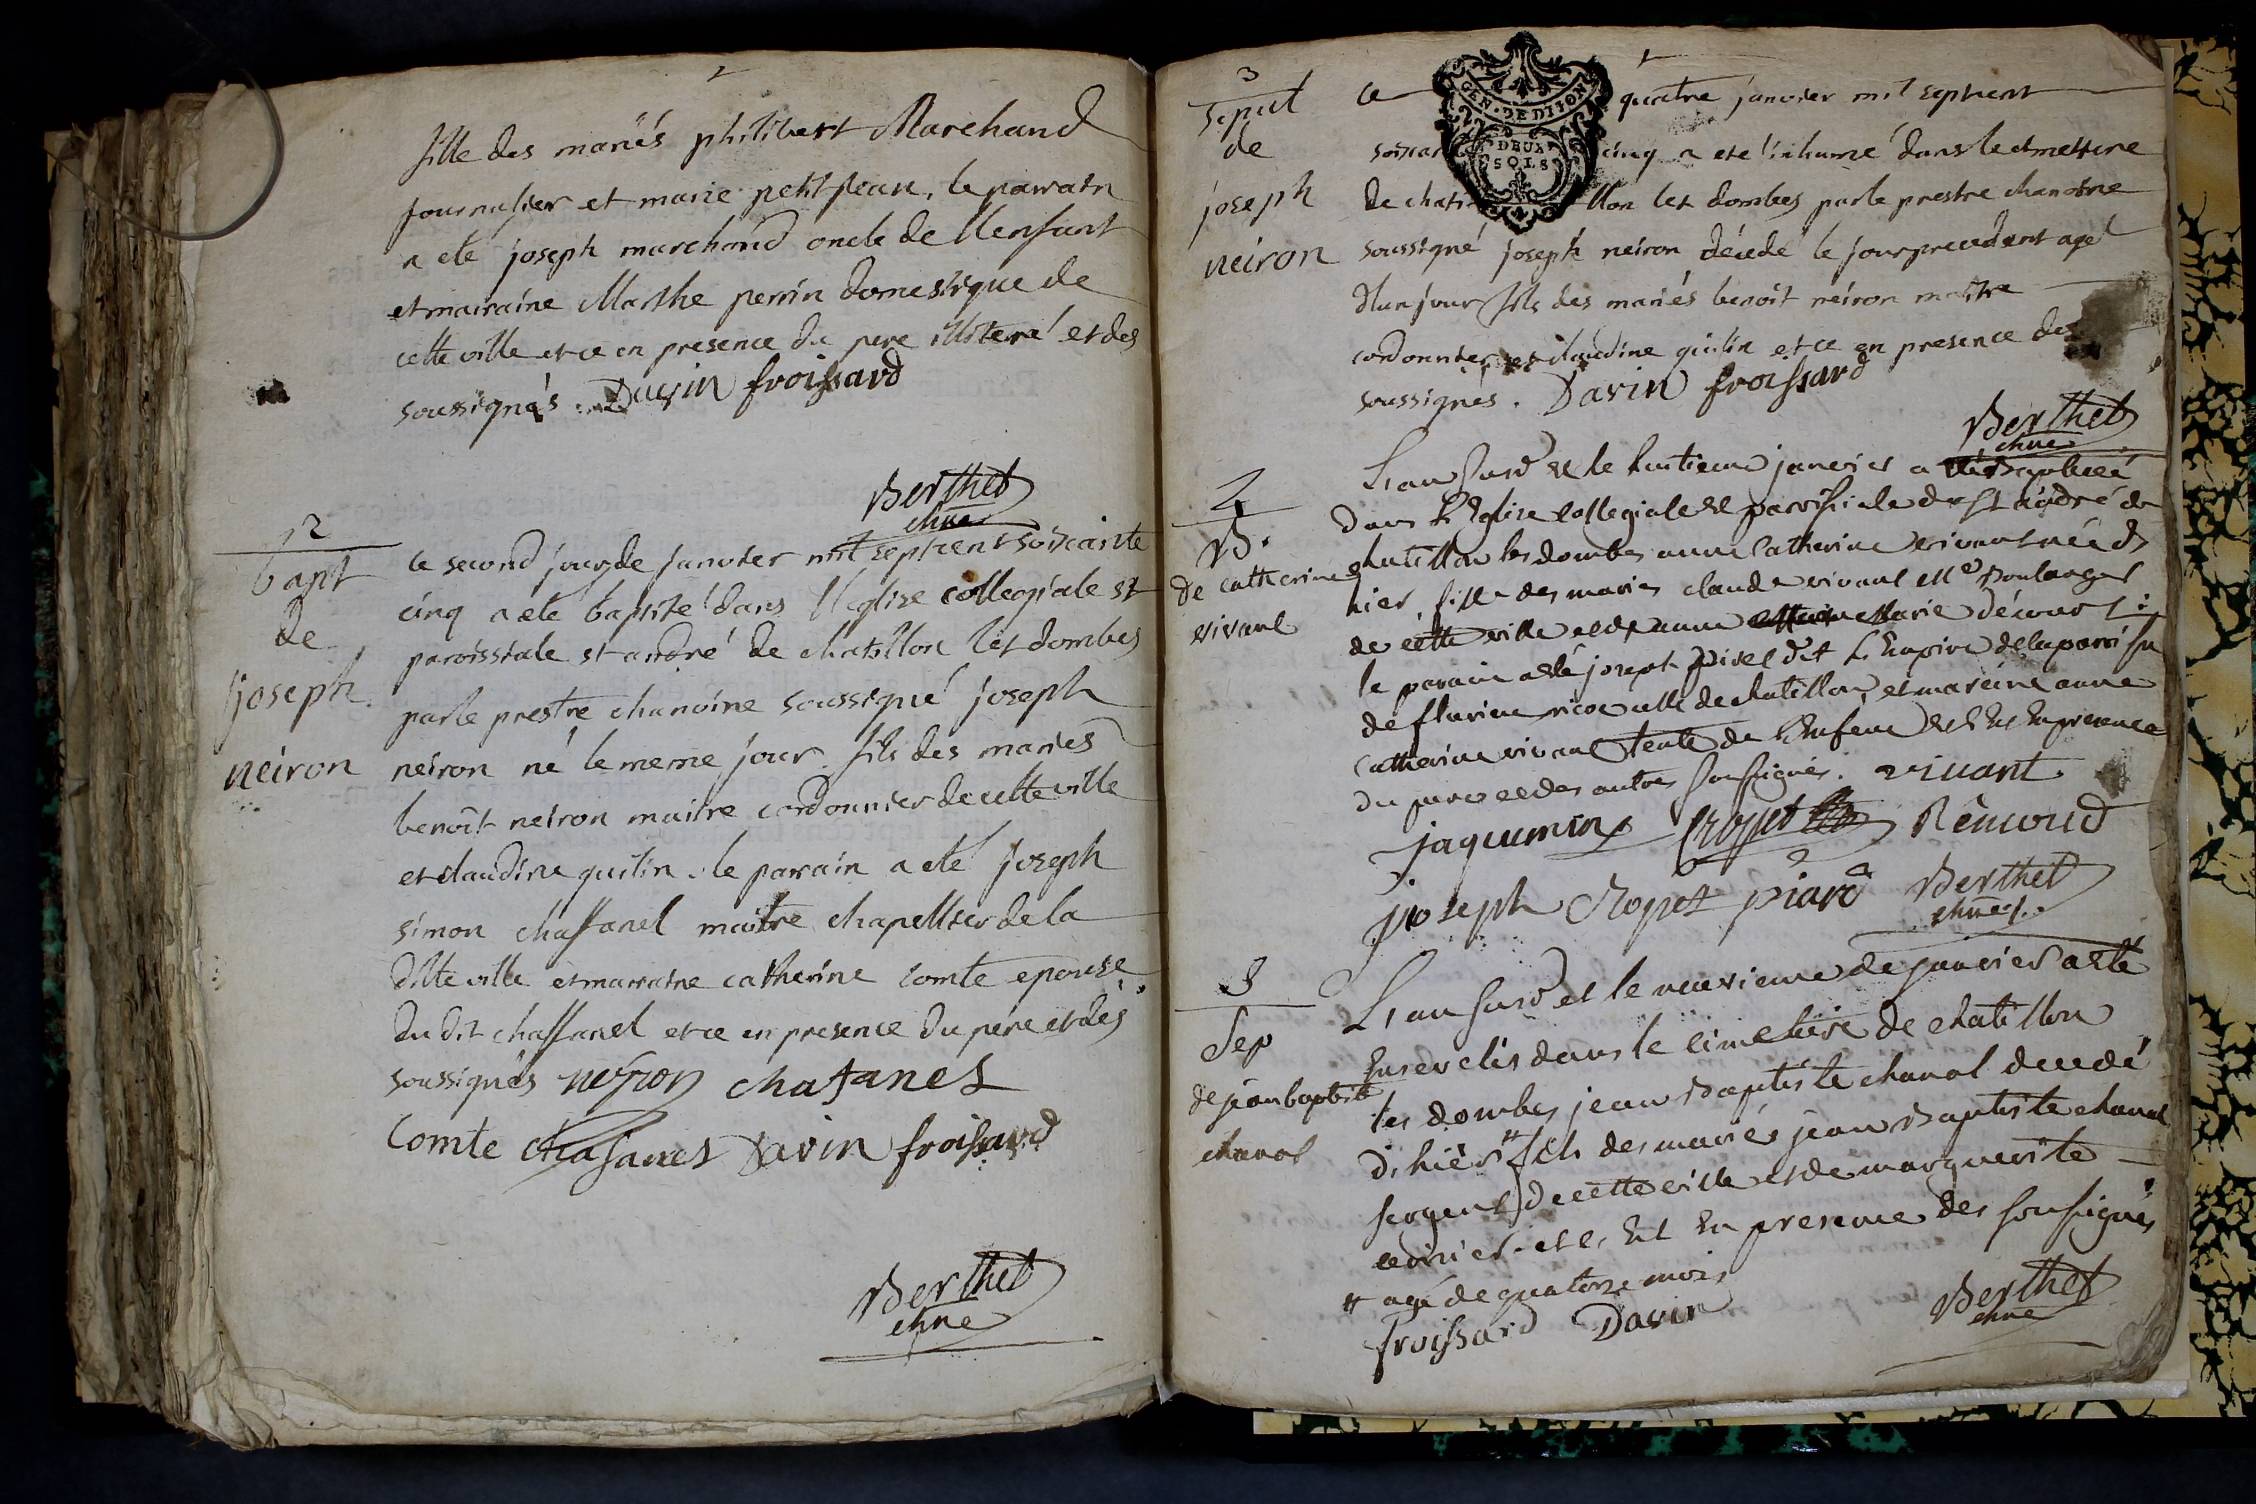 fille des mariés philibert Marchand
journalier et marie petitjean, le parrain
a eté joseph marchand oncle de l'enfant
et mairaine Marthe perrin domestique de
cette ville et ce en presence du pere illiteré et des
soussignés. Davin froissard
Berthet
chne
2
bapt
de
joseph
neiron
le second jour de janvier mil sept cent soixante
cinq a eté baptisé dans l'eglise collegiale et
paroissiale st andré de chatillon les dombes
par le prestre chanoine soussigné joseph
neiron né le meme jour. fils des mariés
benoit neiron maitre cordonnier de cette ville
et claudine quilin. le parrain a eté joseph
simon chaffanel maitre chapellier de la
ditte ville et marraine catherine comte epouse
du dit chaffanel et ce en presence du père et des
soussignés neyron chafanel
Comte chafanel Davin froissard
Berthet
chne
3
sepul
de
joseph
neiron
GEN · DE DIJON
DEUX
SOLS
ce quatre janvier mil sept cent
soixante cinq a eté inhumé dans le cimettire
de chatillon les dombes par le prestre chanoine
soussigné joseph neiron décedé le jour precedent agé
d'un jour fils des mariés benoit neiron maitre
cordonnier et claudine quilin et ce en presence des
soussignés. Davin froissard
Berthet
chne
4
B.
de catherine
vivant
L'an susd et le huitieme janvier a été Baptisée
dans L'Eglise collegiale et parroissiale de St André de
chatillon les dombes anne Catherine vivant née d'
hier, fille des mariés claude vivant Me Boulanger
de cette ville et de anne Marie décour :
le parain a esté joseph dit L'Empire de la parroisse
de fleurieu de chatillon, et maraine anne
Catherine vivant tente de L'Enfent et Est En presence
du pere et des autres soussignés. vivant
jaquemin Cropet Rémond
joseph Cropet piard Berthet
chne.
5
Sep
de jean baptiste
chanal
L'an susd et le neuvieme de janvier a esté
Ensevelis dans le cimetière de chatillon
les dombes jean Baptiste chanal decedé
d'hièr # fils des mariés jean Baptiste chanal
sergent de cette ville et de marguerite
et Est En presence des soussignés
# agé de quatorze mois
froissard Davin Berthet
chne